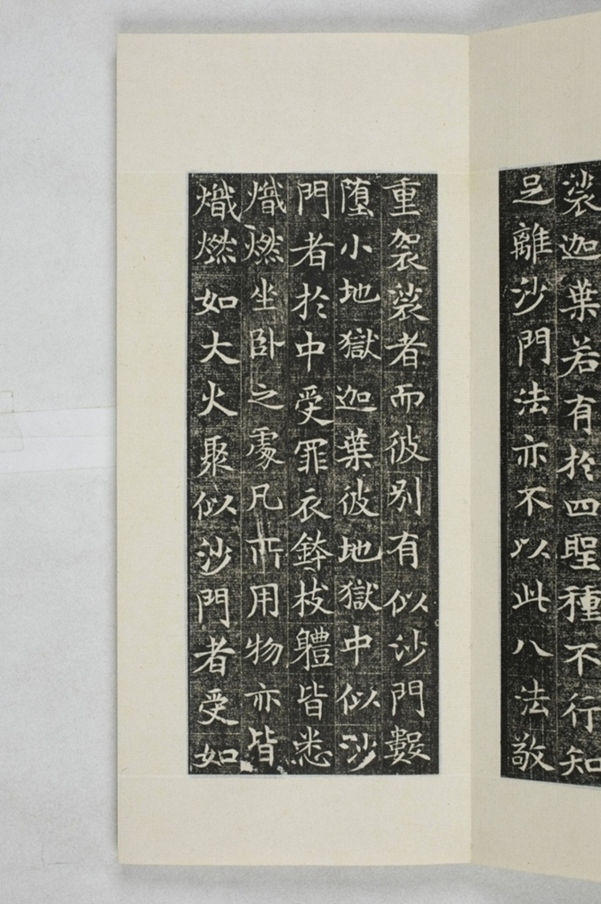 裟迦葉若有於四聖種不行知
足離沙門法亦不以此八法敬
重袈裟者而彼別有似沙門㲉
墮小地獄迦葉彼地獄中似沙
門者於中受罪衣鉢枝軆皆悉
熾燃坐卧之處凡所用物亦皆
熾燃如大火聚似沙門者受如